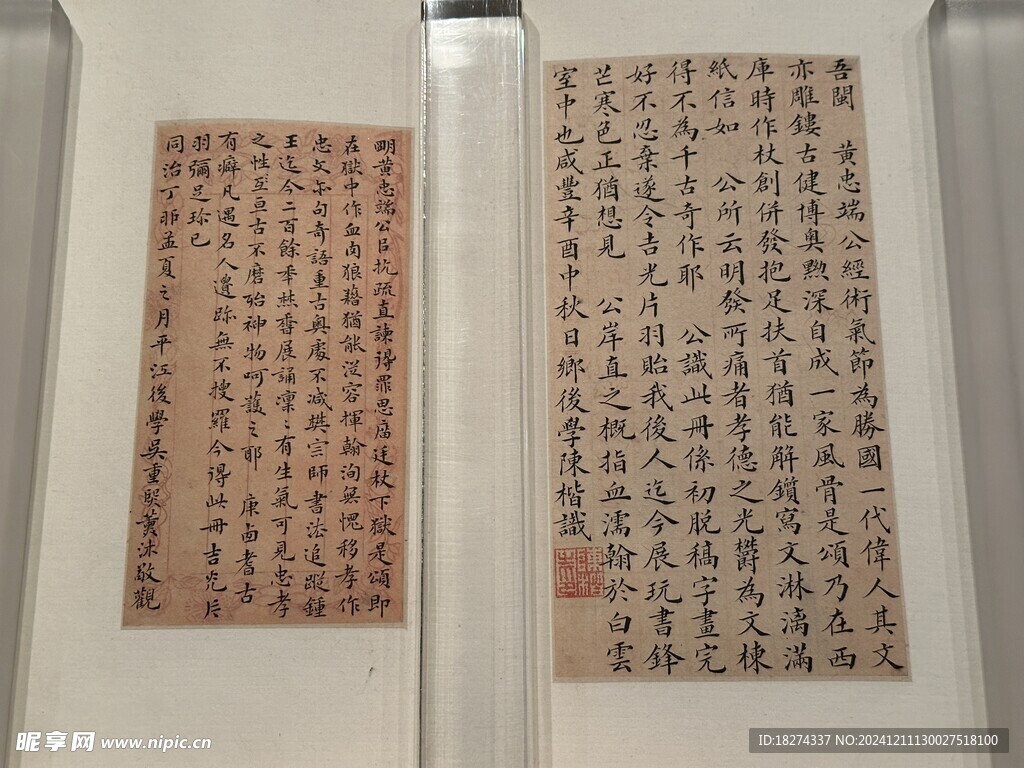 吾閩　黃忠端公經術氣節為勝國一代偉人其文
亦雕鏤古健博奧黝深自成一家風骨是頌乃在西
庫時作杖創併發抱足扶首猶能解鎖寫文淋漓滿
紙信如　公所云明發所痛者孝德之光欝為文棟
得不為千古奇作耶　公識此冊係初脫稿字畫完
好不忍棄遂令吉光片羽貽我後人迄今展玩書鋒
芒寒色正猶想見　公岸直之概指血濡翰於白雲
室中也咸豐辛酉中秋日鄉後學陳楷識
明黃忠端公臣抗疏直諫得罪思廟廷杖下獄是頌即
在獄中作血肉狼藉猶能從容揮翰洵無愧移孝作
忠文亦句奇語重古奧處不减樊宗師書法追蹤鍾
王迄今二百餘年焚香展誦凜〻有生氣可見忠孝
之性至亘古不磨殆神物呵護之耶　庚鹵耆古
有癖凡遇名人遺跡無不搜羅今得此冊吉光片
羽彌足珍已
同治丁卯孟夏之月平江後學吳重熙薰沐敬觀
昵享网 www.nipic.cn
ID:18274337 NO:20241211130027518100